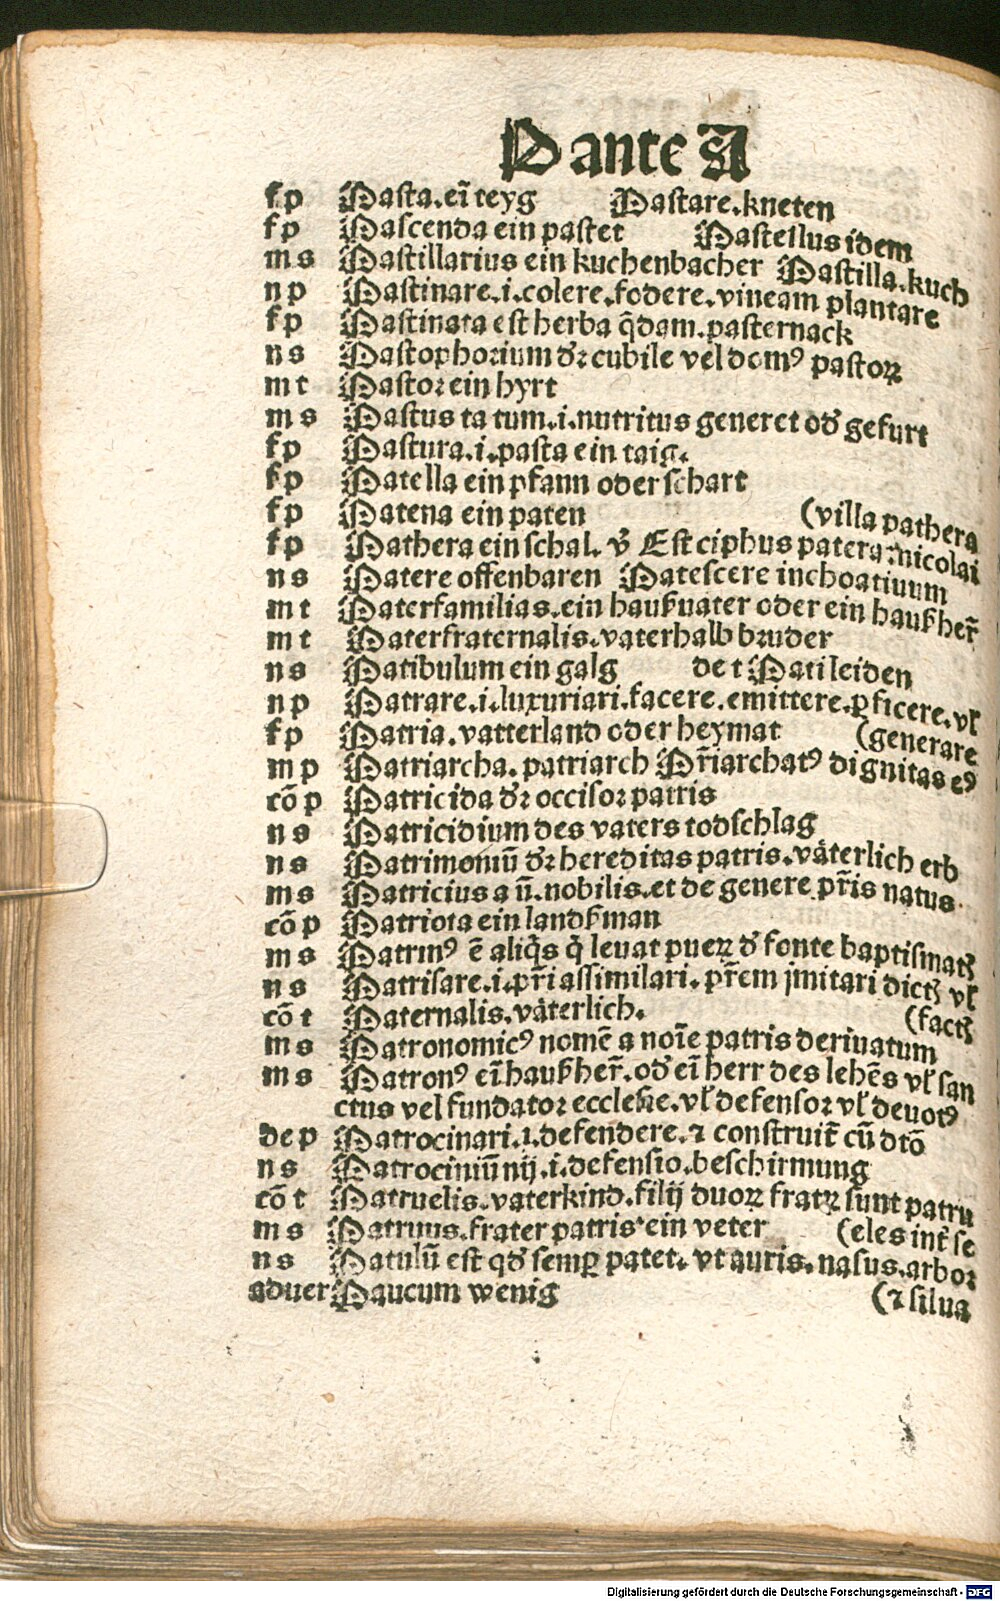 P ante A
f p Pasta. eī teyg Pastare. kneten
f p Pascenda ein pastet Pastellus idem
m s Pastillarius ein kuchenbacher Pastilla. kuch
n p Pastinare. i. colere. fodere. vineam plantare
f p Pastinata est herba q̄dam. pasternack
n s Pastophorium dr̄ cubile vel domꝰ pastoꝝ
m t Pastor ein hyrt
m s Pastus ta tum. i. nutritus generet od' gefurt
f p Pastura. i. pasta ein taig.
f p Patella ein pfann oder schart
f p Patena ein paten (villa pathera
f p Pathera ein schal. v̄ʒ Est ciphus patera: nicolai
n s Patere offenbaren Patescere inchoatiuum
m t Paterfamilias. ein haußuater oder ein haußher̄
m t Paterfraternalis. vaterhalb bruder
n s Patibulum ein galg de t Pati leiden
n p Patrare. i. luxuriari. facere. emittere. ꝑficere. vl̓
f p Patria. vatterland oder heymat (generare
m p Patriarcha. patriarch Pr̄iarchatꝰ dignitas eꝰ
cō p Patricida dr̄ occisor patris
n s Patricidium des vaters todschlag
n s Patrimoniū dr̄ hereditas patris. väterlich erb
m s Patricius a ū. nobilis. et de genere pr̄is natus
cō p Patriota ein landßman
m s Patrinꝰ ē aliq̄s q̄ leuat pueꝝ d' fonte baptismatꝭ
n s Patrisare. i. pr̄i assimilari. pr̄em jmitari dictꝭ vl̓
cō t Paternalis. väterlich. (factꝭ
m s Patronomicꝰ nomē a noīe patris deriuatum
m s Patronꝰ eī haußher̄. od' eī herr des lehēs vl̓ san
ctus vel fundator ecclesie. vl̓ defensor vl̓ deuotꝰ
de p Patrocinari. i. defendere. ⁊ construit̄ cū dtō
n s Patrociniū nij. i. defensio. beschirmung
cō t Patruelis. vaterkind. filij duoꝝ fratꝝ sunt patru
m s Patruus. frater patris ein veter (eles int̄ se
n s Patulū est qd' semꝑ patet. vt auris. nasus. arbor
aduer Paucum wenig (⁊ silua
Digitalisierung gefördert durch die Deutsche Forschungsgemeinschaft - DFG